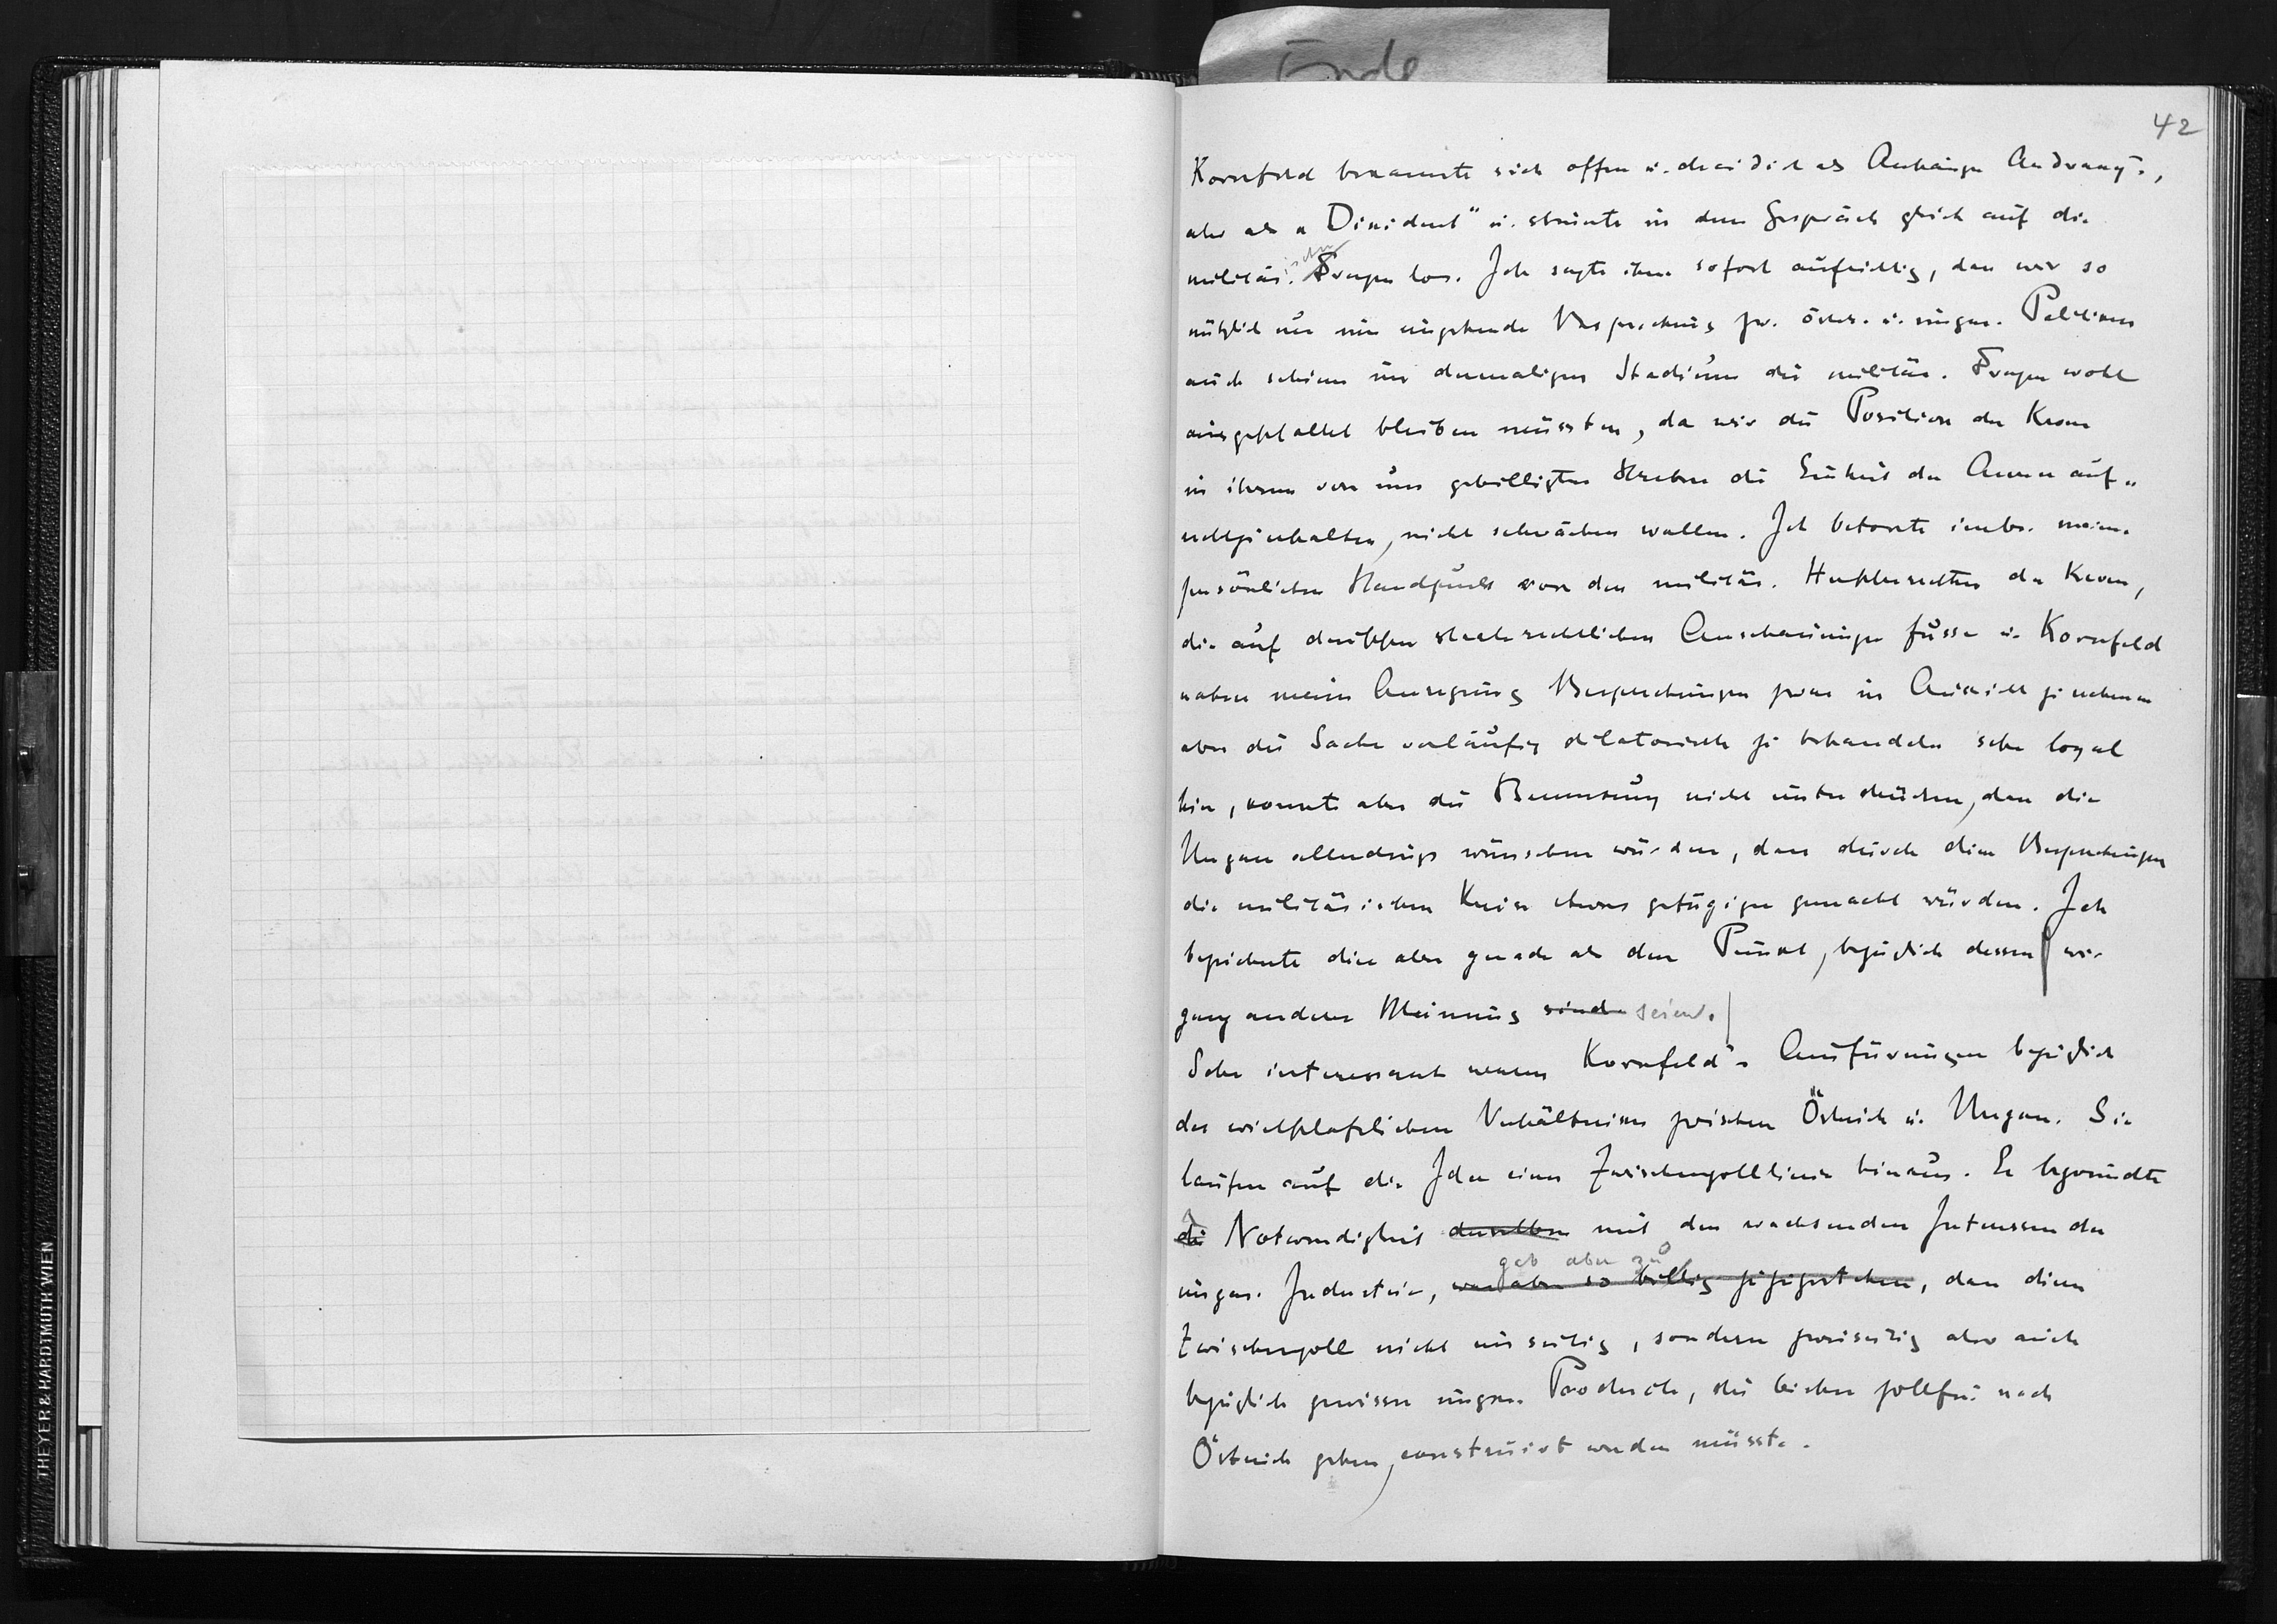 Ende
42
Kornfeld bekannte sich offen u. decidirt als Anhänger Andrassy's,
aber als „Dissident" u. steuerte in dem Gespräch gleich auf die
militär.ischen Fragen los. Ich sagte ihm sofort aufrichtig, dass wir so
nützlich uns eine eingehende Besprechung zw. österr. u. ungar. Politikern
auch schiene im dermaligen Stadium die militär. Fragen wohl
ausgeschaltet bleiben müssten, da wir die Position der Krone
in ihrem von uns gebilligten Streben die Einheit der Armee auf-
rechtzuerhalten, nicht schwächen wollen. Ich betonte insbes. meinen
persönlichen Standpunkt von den militär. Hoheitsrechten der Krone,
die auf deutschen staatsrechtlichen Anschauungen fusse u. Kornfeld
nahm meine Anregung Besprechungen zwar in Aussicht zu nehmen
aber die Sache vorläufig dilatorisch zu behandeln sehr loyal
hin, konnte aber die Bemerkung nicht unterdrücken, dass die
Ungarn allerdings wünschen würden, dass durch diese Besprechungen
die militärischen Kreise etwas gefügiger gemacht würden. Ich
bezeichnete dies aber gerade als den Punkt, bezüglich dessen wir
ganz anderer Meinung sind seien.
Sehr interessant waren Kornfeld's Ausführungen bezüglich
des wirthschaftlichen Verhältnisses zwischen Östreich u. Ungarn. Sie
laufen auf die Idee einer Zwischenzolllinie hinaus. Er begründete
die Notwendigkeit derselben mit den wachsenden Interessen der
gab aber zu
ungar. Industrie, war aber so billig zuzugestehen, dass dieser
Zwischenzoll nicht einseitig, sondern zweiseitig also auch
bezüglich gewisser ungar. Producte, die bisher zollfrei nach
Östreich gehen, construirt werden müsste.
THEYER & HARDTMUTH WIEN